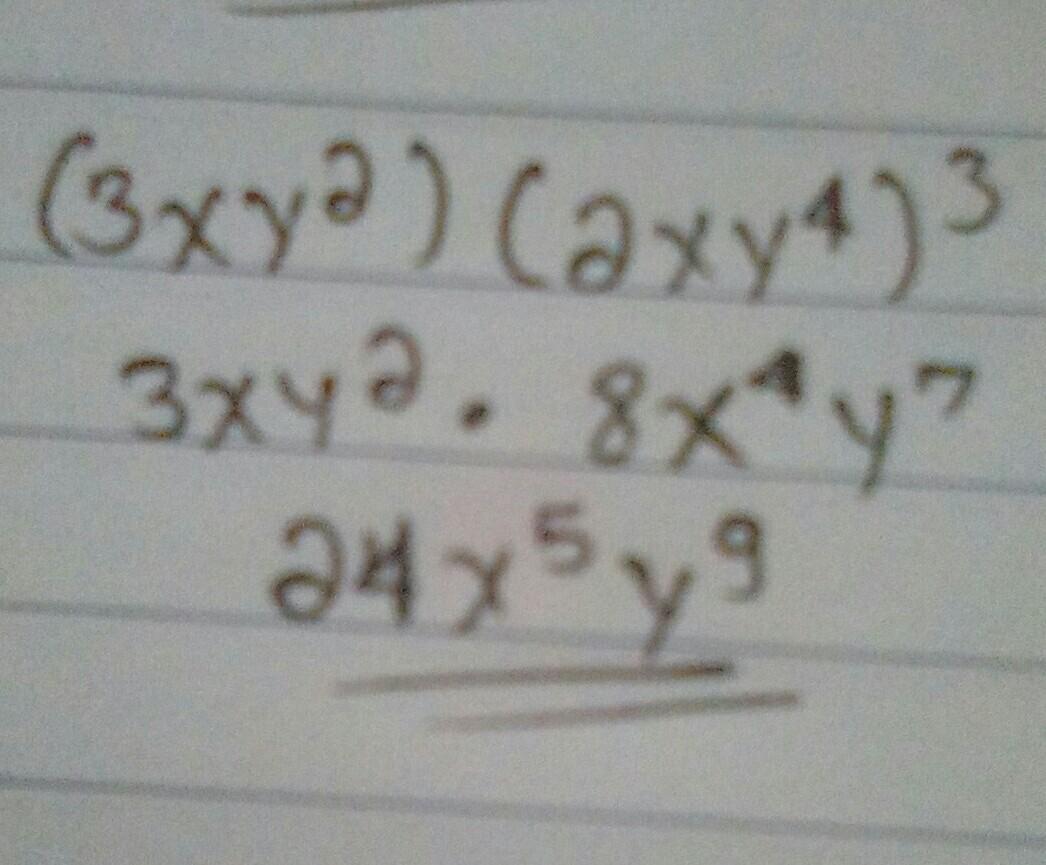 (3xy²)(2xy⁴)³
3xy² · 8x⁴y⁷
24x⁵y⁹